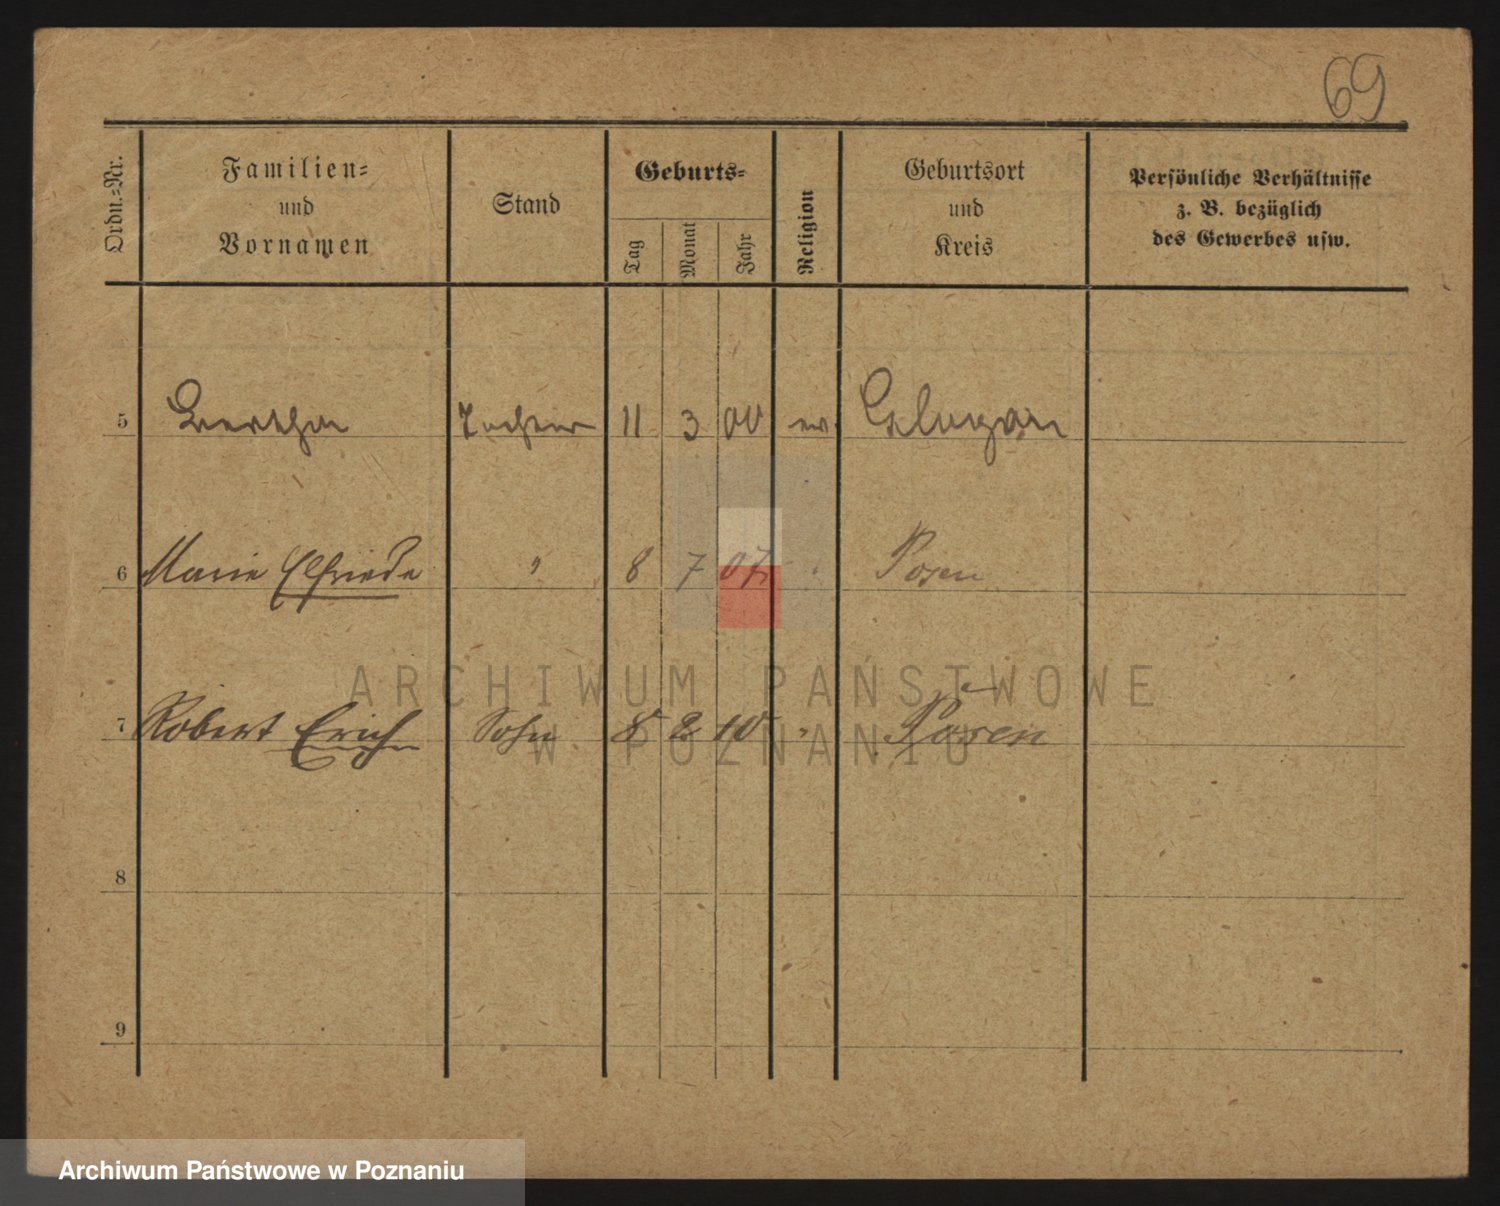 69
Ordn.-Nr.
Familien-
und
Vornamen
Stand
Geburts-
Tag
Monat
Jahr
Religion
Geburtsort
und
Kreis
Persönliche Verhältnisse
z. B. bezüglich
des Gewerbes usw.
5 Bertha Tochter 11 3 00 ev.
6 Marie Elfriede " 8 7 07 Posen
7 Robert Erich Sohn 8 2 10 " Posen
8
9
ARCHIWUM PAŃSTWOWE
W POZNANIU
Archiwum Państwowe w Poznaniu